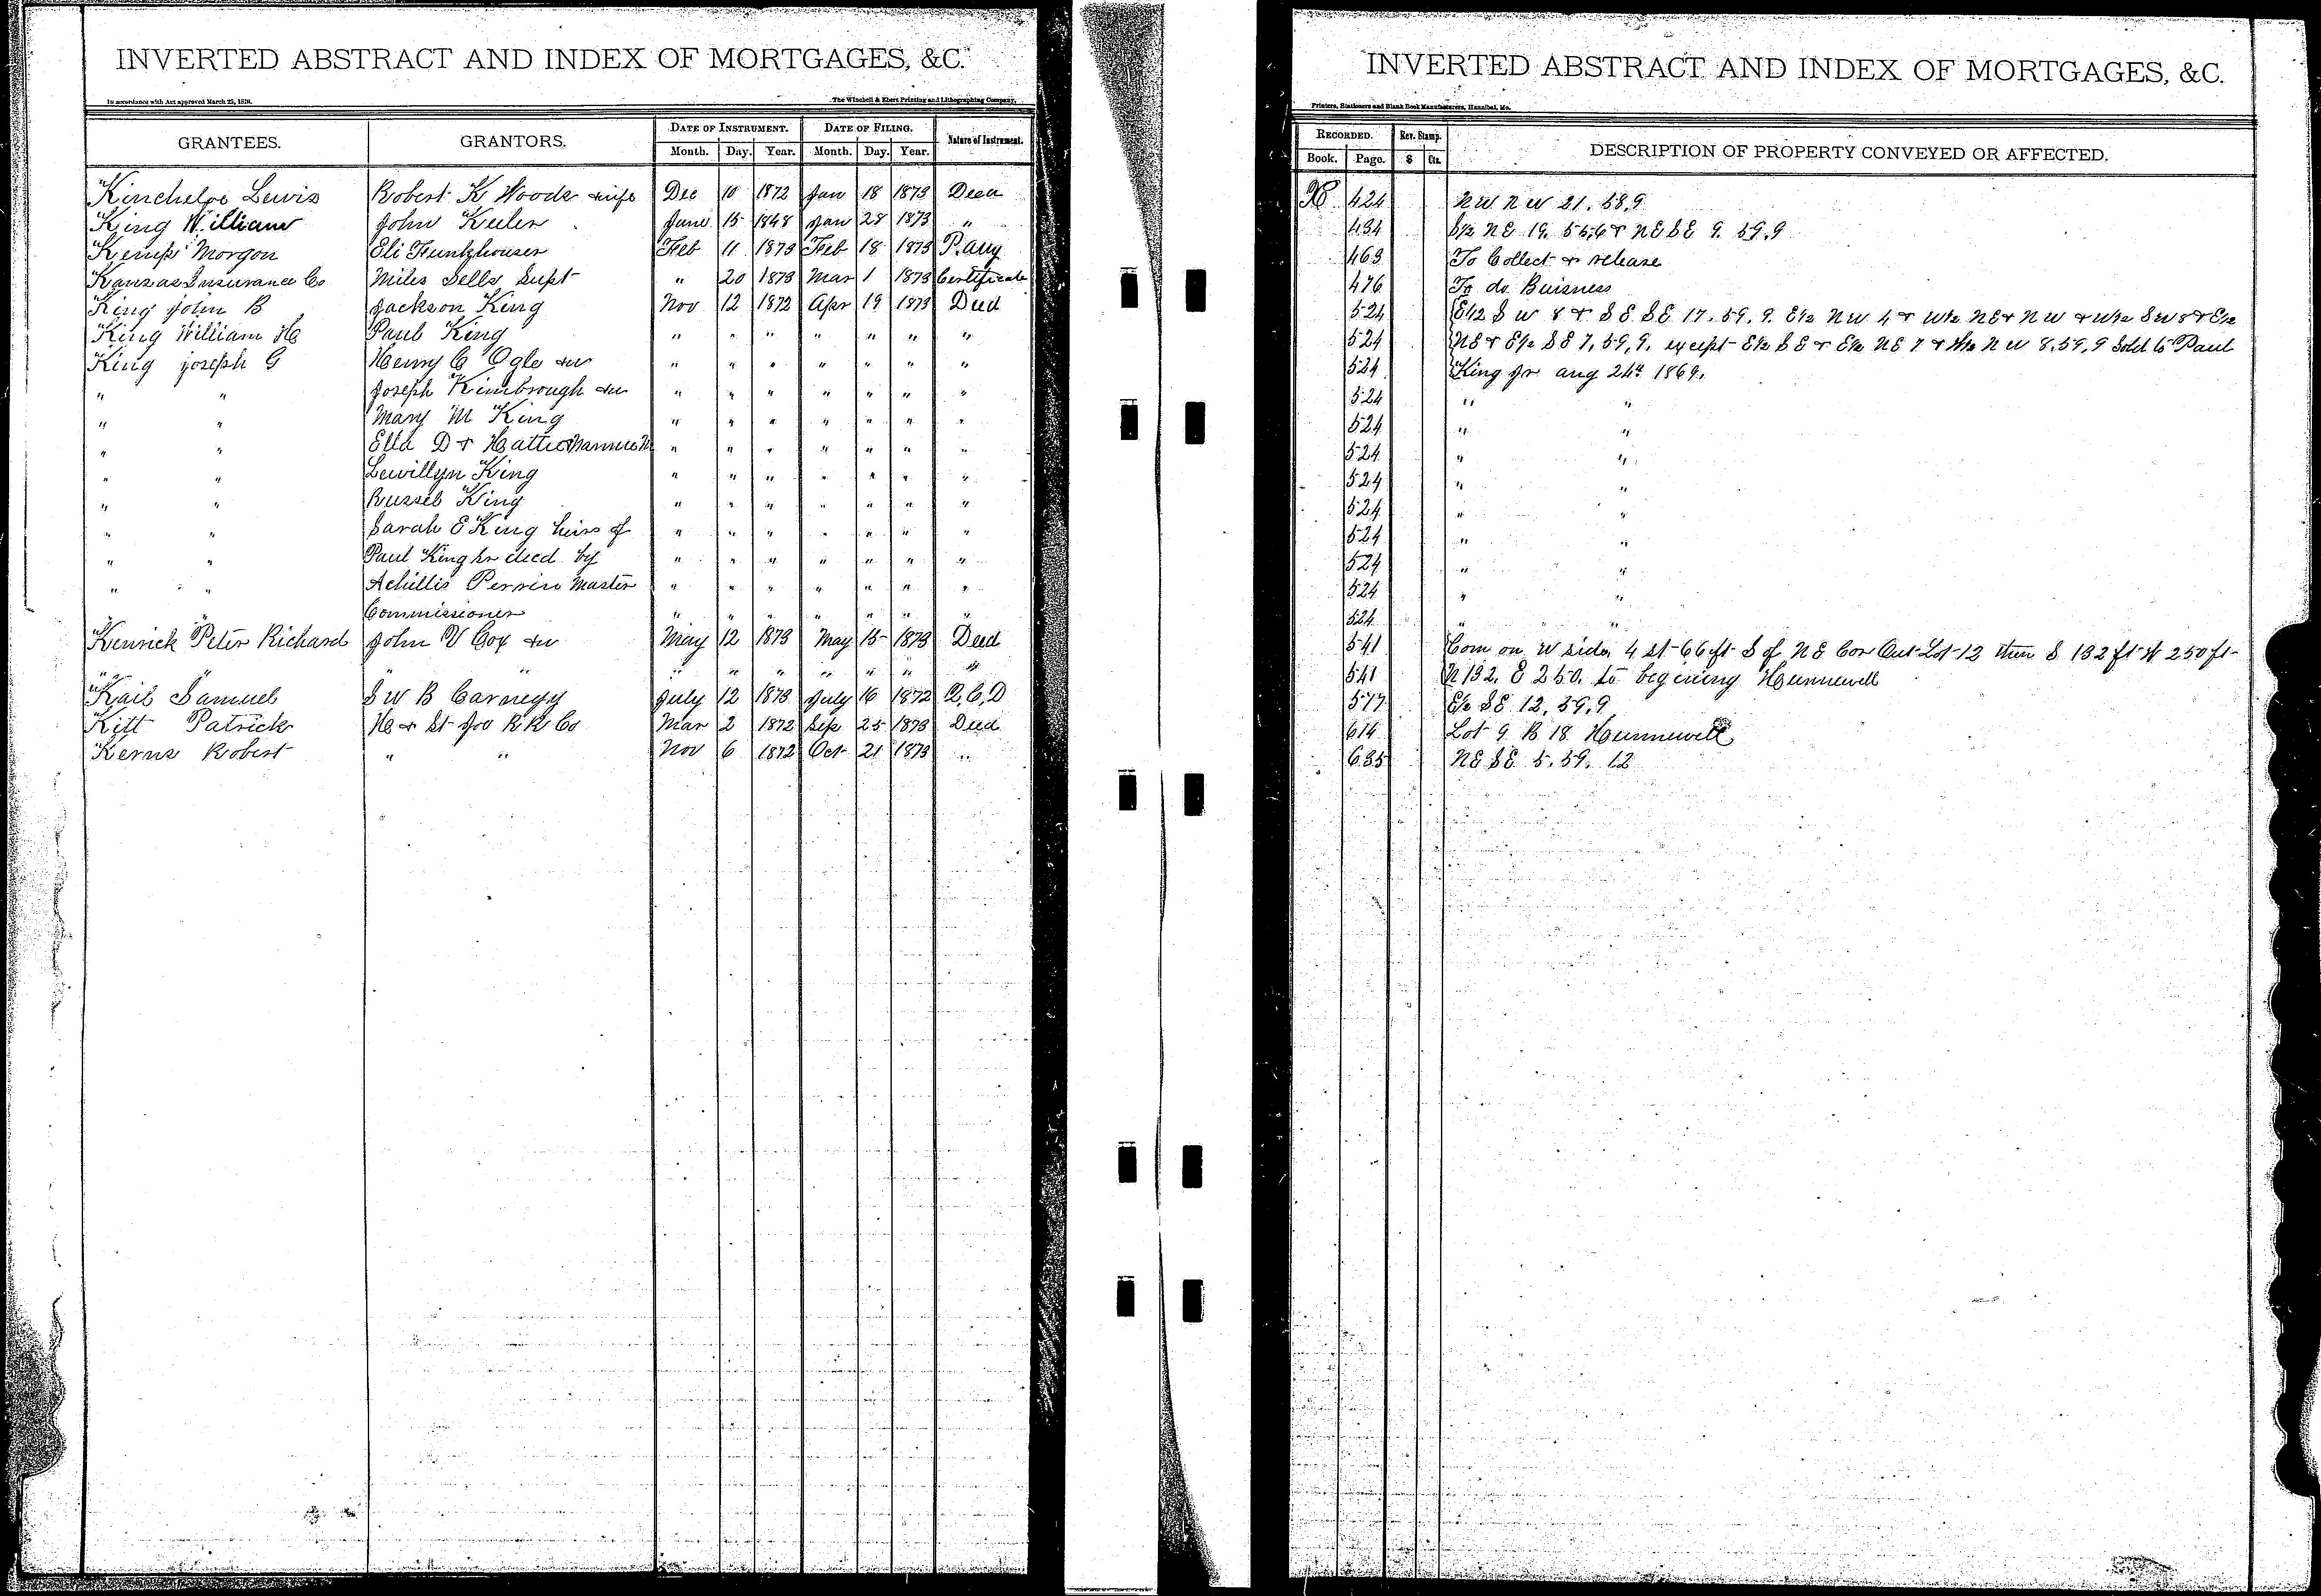 INVERTED ABSTRACT AND INDEX OF MORTGAGES, &C.
In accordance with Act approved March 25, 1870. The Winchell & Ebers Printing and Lithographing Company,
GRANTEES. GRANTORS. DATE OF INSTRUMENT. DATE OF FILING. Nature of Instrument.
Month. Day. Year. Month. Day. Year.
Kincheloe Lewis Robert K Woods wife Dec 10 1872 Jan 18 1873 Deed
King William John Keiler June 15 1848 Jan 28 1873 "
Kemp Morgan Eli Funtzhouser Feb 11 1873 Feb 18 1873 P. atty
Kansas Insurance Co Miles Sells Supt " 20 1873 Mar 1 1873 Certificate
King John B Jackson King Nov 12 1872 Apr 19 1873 Deed
King William H Paul King " " " " " " "
King Joseph G Henry C Ogle &w " " " " " " "
" " Joseph Kimbrough &w " " " " " " "
" " Mary M King " " " " " " "
" " Ella D & Hattie " " " " " " "
" " Lewillyn King " " " " " " "
" " Russel King " " " " " " "
" " Sarah E King heirs of " " " " " " "
" " Paul King Sr decd by " " " " " " "
" " Achillis Perrin Master " " " " " " "
" Commissioner " " " " " " "
Kenrick Peter Richard John V Cox &w May 12 1873 May 15 1873 Deed
" " " " " " " " " " "
Kail Samuel S W B Carnegy July 12 1873 July 16 1872 Q, C, D
Kitt Patrick H & St Joe R R Co Mar 2 1872 Sep 25 1873 Deed
Kerns Robert " " Nov 6 1872 Oct 21 1873 "
INVERTED ABSTRACT AND INDEX OF MORTGAGES, &C.
Printers, Stationers and Blank Book Manufacturers, Hannibal, Mo.
RECORDED. Rev. Stamp. DESCRIPTION OF PROPERTY CONVEYED OR AFFECTED.
Book. Page. $ Cts.
424 NW NW 21. 58, 9
434 S½ NE 19. 55, 6 & NE SE 9. 59, 9
463 To Collect & release
476 To do Buisness
524 E½ S W 8 & S E S E 17. 59. 9. E½ NW 4 & W½ NE & NW & W½ SW 5 & E½
524 NE & E½ SE 7, 59, 9, except E½ SE & E½ NE 7 & W½ NW 8. 59, 9 Sold to Paul
524 King Jr aug 24th 1869.
524 " "
524 " "
524 " "
524 " "
524 " "
524 " "
524 " "
524 " "
524 " "
541 Com on W side 4 st 66 ft S of NE Cor Out Lot 12 then S 132 ft W 250 ft
541 N 132, E 250, to begining Hunnewell
577 E½ SE 12, 59, 9
614 Lot 9 B 18 Hunnewell
635 NE SE 5. 59. 12